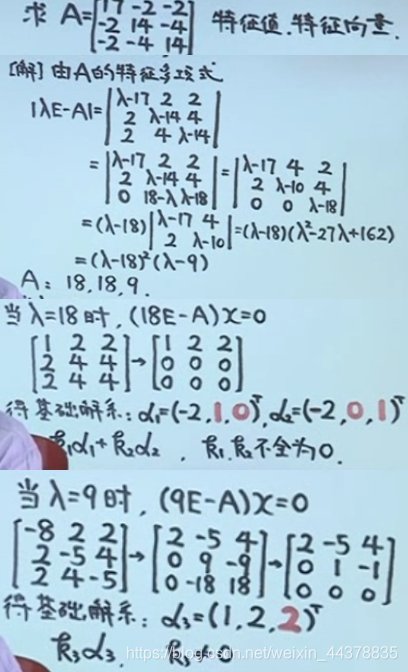 求 A=[17 -2 -2; -2 14 -4; -2 -4 14] 特征值.特征向量.
[解] 由A的特征多项式
|λE-A|=|λ-17 2 2; 2 λ-14 4; 2 4 λ-14|
=|λ-17 2 2; 2 λ-14 4; 0 18-λ λ-18|=|λ-17 4 2; 2 λ-10 4; 0 0 λ-18|
=(λ-18)|λ-17 4; 2 λ-10|=(λ-18)(λ²-27λ+162)
=(λ-18)²(λ-9)
A: 18,18,9.
当λ=18时,(18E-A)x=0
[1 2 2; 2 4 4; 2 4 4]→[1 2 2; 0 0 0; 0 0 0]
得基础解系:α₁=(-2,1,0)ᵀ,α₂=(-2,0,1)ᵀ
k₁α₁+k₂α₂ , k₁.k₂不全为0.
当λ=9时,(9E-A)x=0
[-8 2 2; 2 -5 4; 2 4 -5]→[2 -5 4; 0 9 -9; 0 -18 18]→[2 -5 4; 0 1 -1; 0 0 0]
得基础解系: α₃=(1,2,2)ᵀ
k₃α₃,
https://blog.csdn.net/weixin_44378835